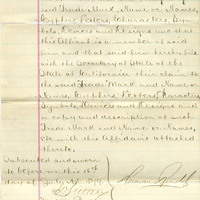 said Trade Mark, Name or Names,
Cyphers, Letters, Characters, Sym-
bols, Devices and Designs and that
this Affiant is a member of said
firm and that said firm hereby file
with the Secretary of State of the
State of California their claim to
the said Trade Mark and Name or
Names, Cyphers, Letters, Characters
Symbols, Devices and Designs and
a copy and description of such
Trade Mark and Name or Names,
etc. with this Affidavit attached
thereto.
Subscribed and sworn
to before me this 16th
day of July